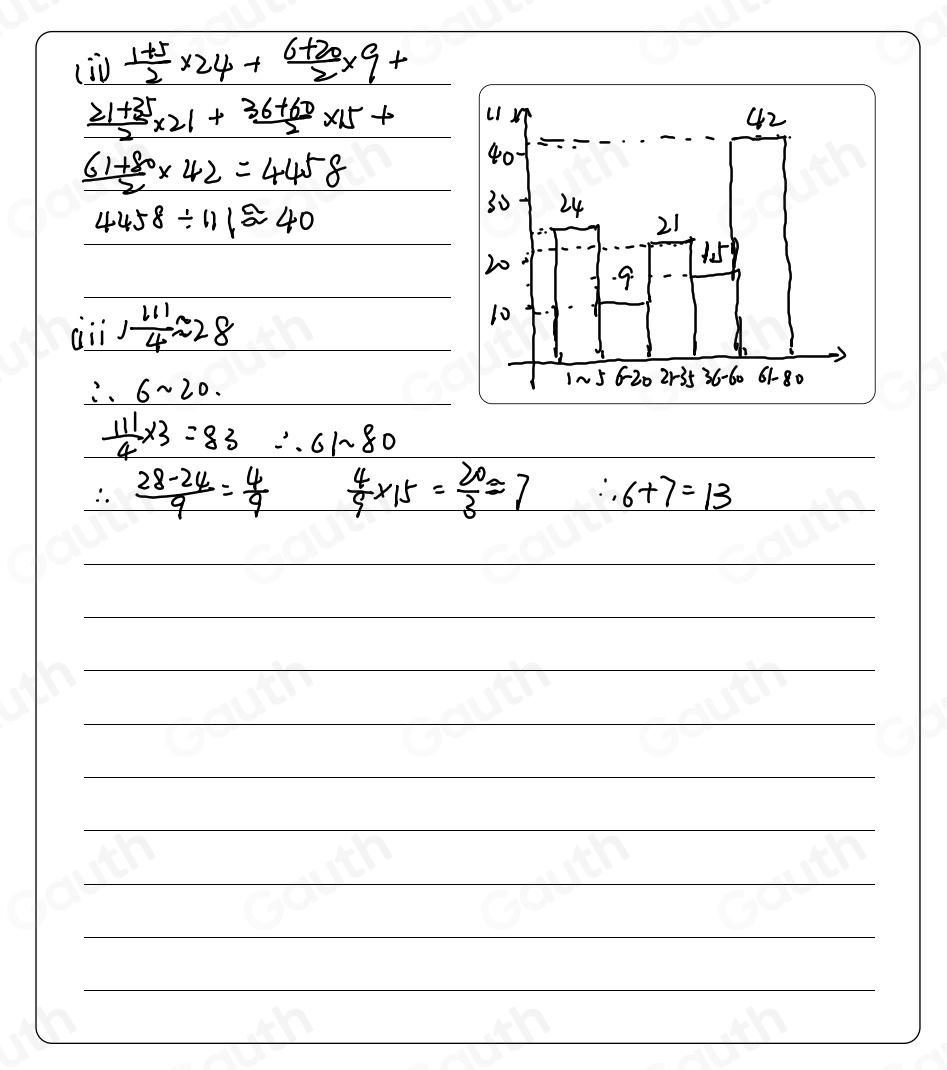 (ii) (1+5)/2 ×24 + (6+20)/2 ×9 +
(21+35)/2 ×21 + (36+60)/2 ×15 +
(61+80)/2 × 42 = 4458
4458 ÷ 111 ≈ 40
(iii) 111/4 ≈ 28
∴ 6~20.
111/4 ×3 = 83 ∴ 61~80
∴ (28-24)/9 = 4/9 4/9 ×15 = 20/3 ≈ 7 ∴ 6+7=13
42
40
30
24
21
20
15
9
10
1~5 6-20 21-35 36-60 61-80
Gauth